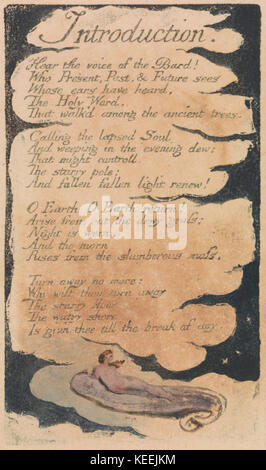 Introduction.
Hear the voice of the Bard!
Who Present, Past, & Future sees
Whose ears have heard,
The Holy Word,
That walk'd among the ancient trees.
Calling the lapsed Soul
And weeping in the evening dew:
That might controll
The starry pole:
And fallen fallen light renew!
O Earth O Earth return!
Arise from out the dewy grass:
Night is worn,
And the morn
Rises from the slumberous mass.
Turn away no more:
Why wilt thou turn away
The starry floor
The watry shore
Is giv'n thee till the break of day.
alamy
Image ID: KEEJKM
www.alamy.com